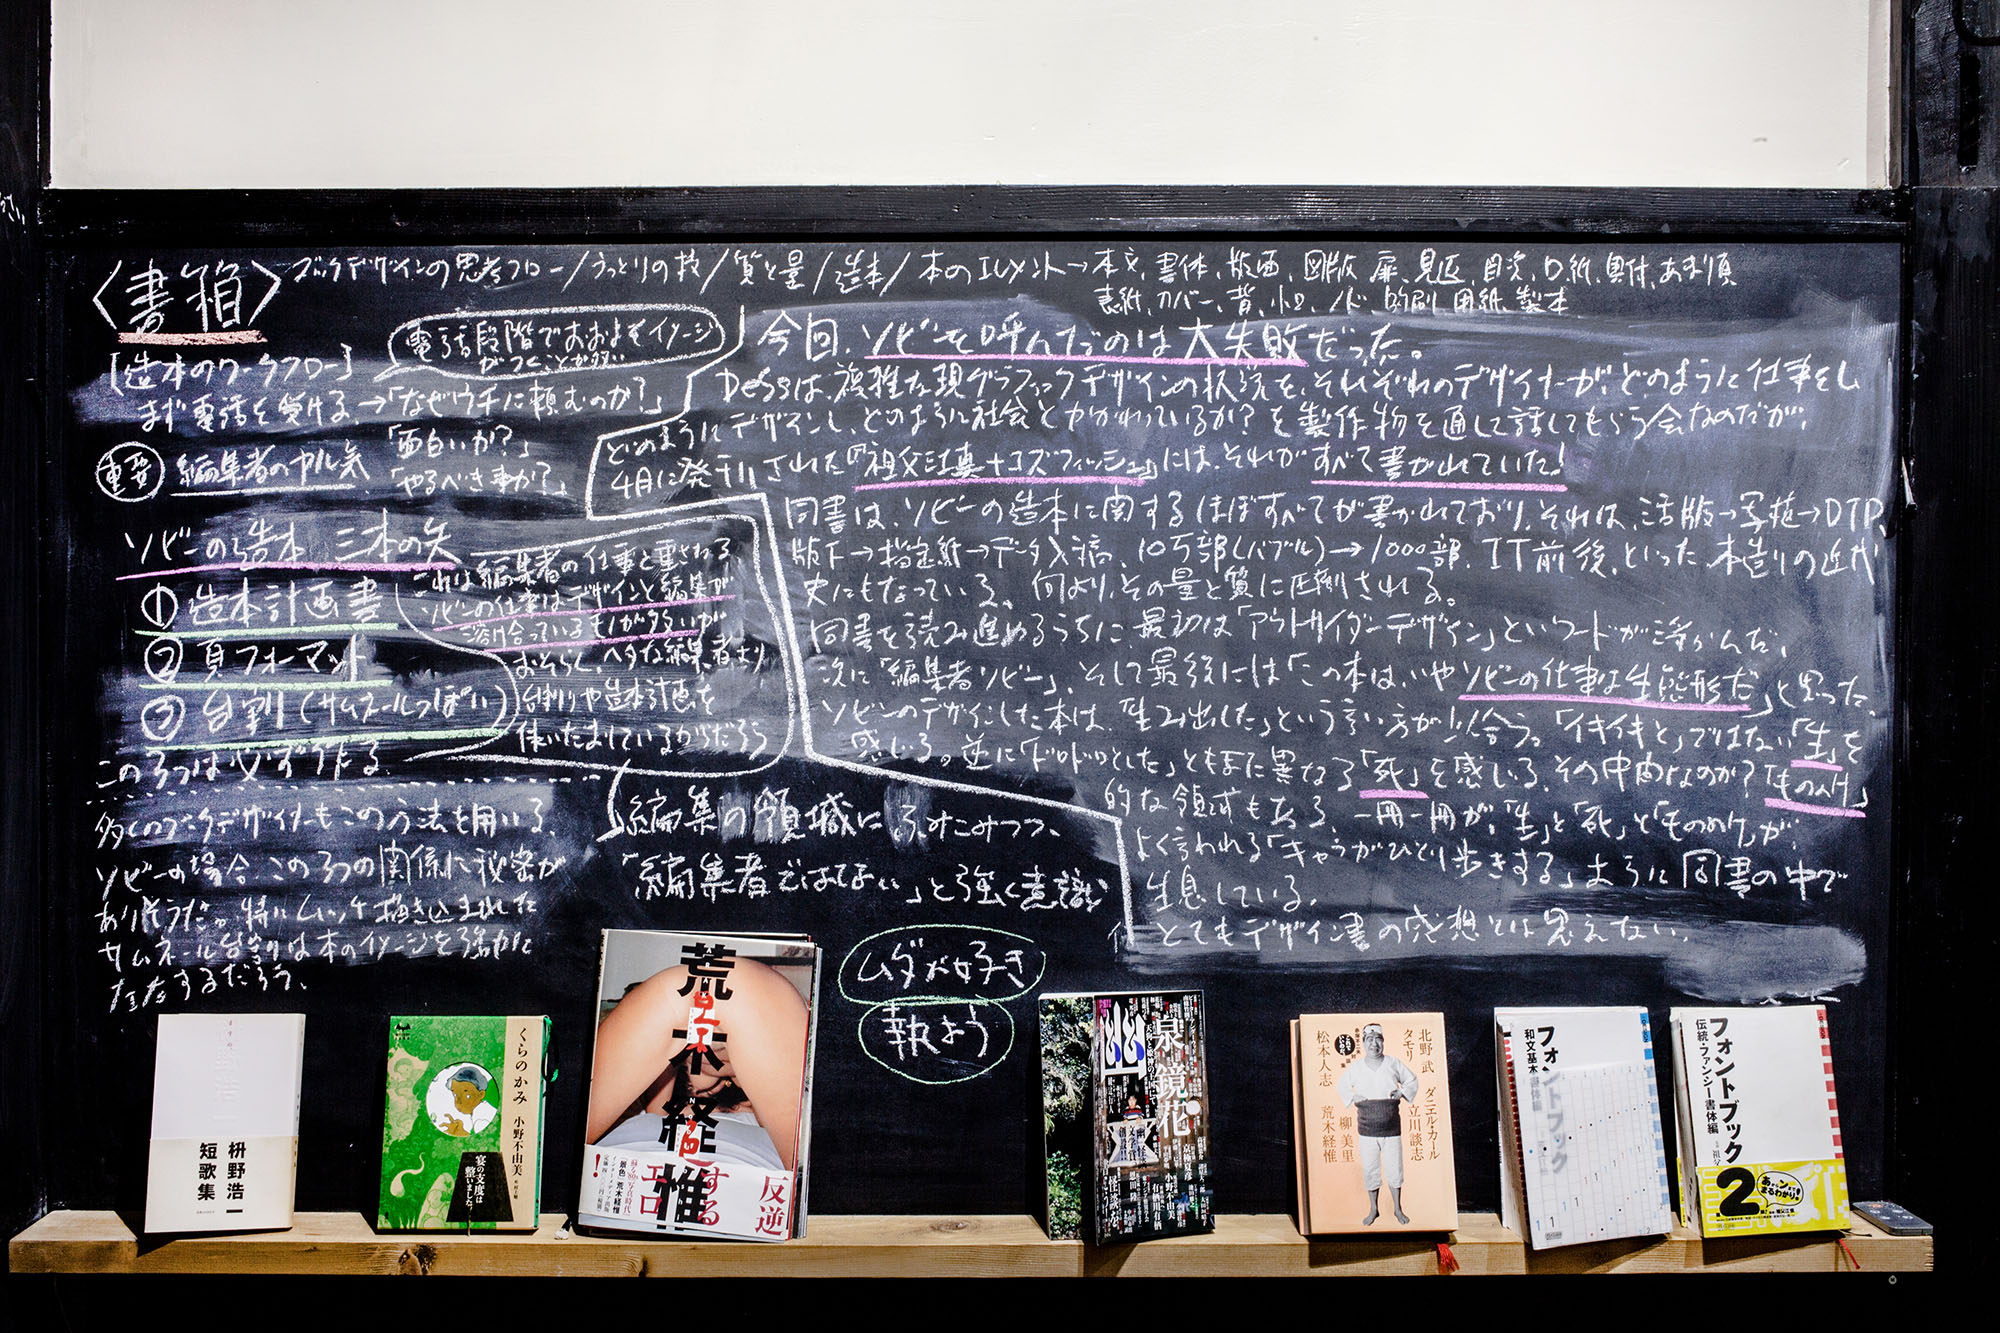 〈書箱〉
ブックデザインの思考フロー/うっとりの技/質と量/造本/本のエレメント→本文、書体、版面、図版、扉、見返、目次、口紙、奥付、あまり頁
表紙、カバー、背、小口、ノド、印刷、用紙、製本
[造本のワークフロー]
電話段階でおおよそイメージ
がつくことが多い
まず電話を受ける、→「なぜウチに頼むのか?」
重要
編集者のヤル気
「面白いか?」
「やるべき事か?」
ソビーの造本 三本の矢
① 造本計画書
② 頁フォーマット
③ 台割り(サムネールっぽい)
この3つは必ず作る、
これは編集者の仕事と重される
ソビーの仕事はデザインと編集が
溶け合っているものが多いが
おそらく、ヘタな編集者より
台割りや造本計画を
使いたおしているからだろう
多くのブックデザイナーもこの方法を用いる、
ソビーの場合、この3つの関係に秘密が
ありそうだ。特にムッチャ描き込まれた
サムネール台割りは本のイメージを強かに
するだろう、
編集の領域にふみこみつつ、
「編集者ではない」と強く意識
ムダが好き
執よう
今回、ソビーを呼んだのは大失敗だった。
DeSSは、複雑な現グラフィックデザインの状況を、それぞれのデザイナーが、どのように仕事をし
どのようにデザインし、どのように社会とかかわっているか?を製作物を通して話してもらう会なのだが、
4月に発刊された『祖父江慎+コズフィッシュ』には、それがすべて書かれていた!
同書は、ソビーの造本に関するほぼすべてが書かれており、それは、活版→写植→DTP、
版下→指定紙→データ入稿、10万部(バブル)→1000部、IT前後、といった本造りの近代
史にもなっている、何より、その量と質に圧倒される。
同書を読み進めるうちに、最初は「アウトサイダーデザイン」というワードが浮かんだ、
次に「編集者ソビー」、そして最後には「この本は、いやソビーの仕事は生態形だ」と思った、
ソビーのデザインした本は、「生み出した」という言い方が似合う。「イキイキと」ではない「生」を
感じる。逆に「ドロドロとした」ともまた異なる「死」を感じる、その中間なのか?「もののけ」
的な領域もある、一冊一冊が、「生」と「死」と「もののけ」が
よく言われる「キャラがひとり歩きする」ように同書の中で
生息している。
とてもデザイン書の感想とは思えない、
枡野浩一
短歌集
くらのかみ
小野不由美
宴の支度は
整いました。
荒木経惟
反逆
する
エロ
!
幽
泉鏡花
北野 武
タモリ
松本人志
ダニエル・カール
立川談志
柳 美里
荒木経惟
フォントブック
和文基本書体編
フォントブック
伝統・ファンシー書体編
2
まるわかり。